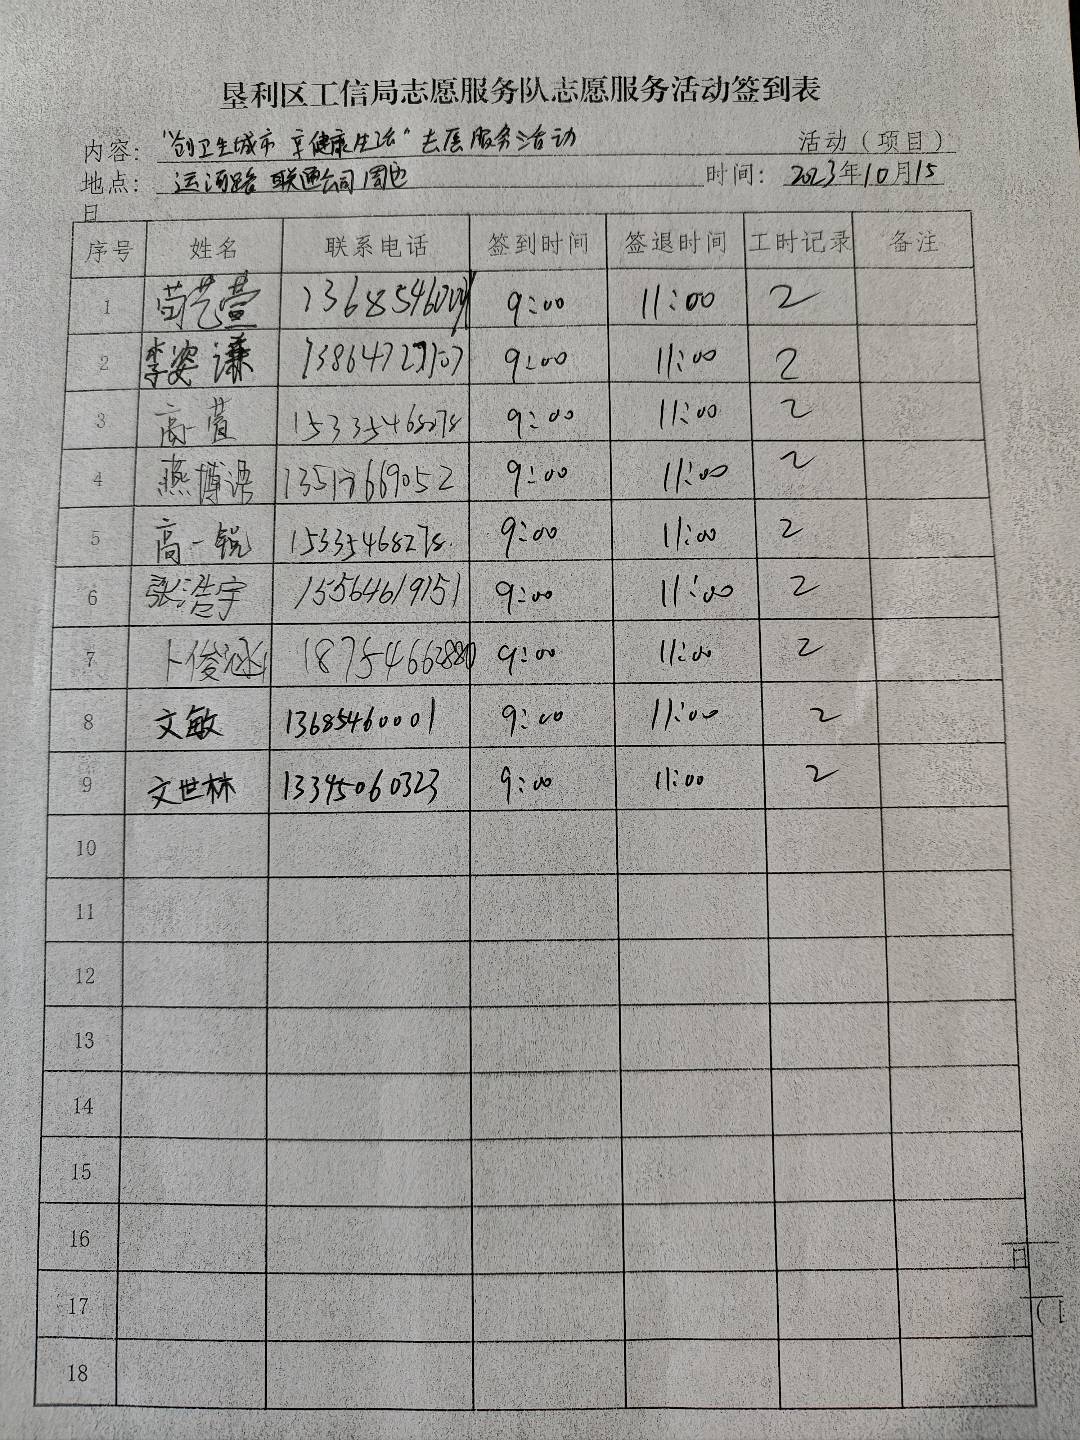 垦利区工信局志愿服务队志愿服务活动签到表
内容：“创卫生城市 享健康生活”志愿服务活动 活动（项目）
地点：运河路 联通公司周边 时间：2023年10月15
日
序号 姓名 联系电话 签到时间 签退时间 工时记录 备注
1 苟艺萱 9:00 11:00 2
2 李姿谦 9:00 11:00 2
3 高一萱 15335468278 9:00 11:00 2
4 燕博语 9:00 11:00 2
5 高一锐 15335468278 9:00 11:00 2
6 张浩宇 15564619151 9:00 11:00 2
7 卜俊涵 18754662880 9:00 11:00 2
8 文敏 13685460001 9:00 11:00 2
9 文世林 13345060323 9:00 11:00 2
10
11
12
13
14
15
16
17
18
日